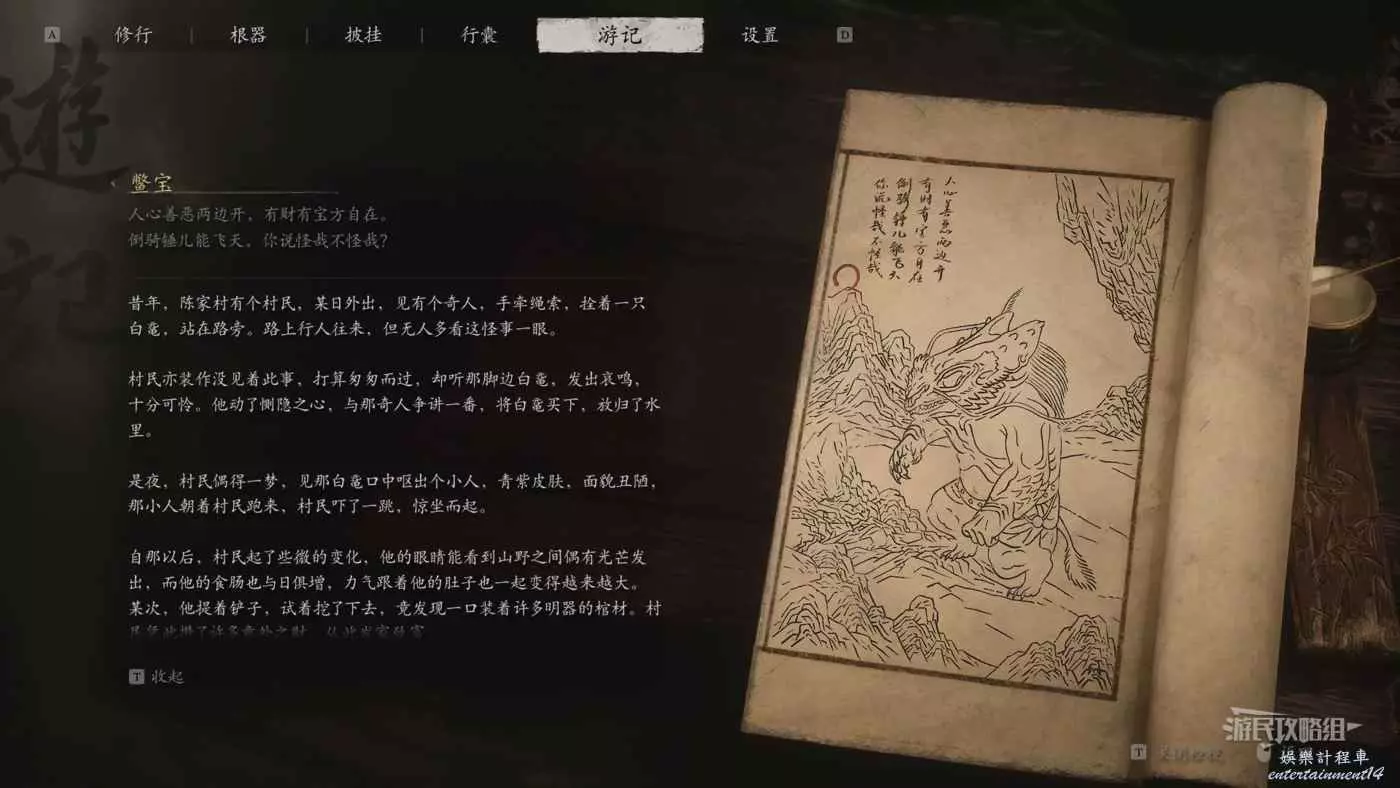 A 修行 | 根器 | 披挂 | 行囊 | 游记 | 设置 D
遊记
鳖宝
人心善恶两边开，有财有宝方自在。
倒骑锤儿能飞天，你说怪哉不怪哉？
昔年，陈家村有个村民，某日外出，见有个奇人，手牵绳索，拴着一只
白鼋，站在路旁。路上行人往来，但无人多看这怪事一眼。
村民亦装作没见着此事，打算匆匆而过，却听那脚边白鼋，发出哀鸣，
十分可怜。他动了恻隐之心，与那奇人争讲一番，将白鼋买下，放归了水
里。
是夜，村民偶得一梦，见那白鼋口中呕出个小人，青紫皮肤，面貌丑陋，
那小人朝着村民跑来，村民吓了一跳，惊坐而起。
自那以后，村民起了些微的变化，他的眼睛能看到山野之间偶有光芒发
出，而他的食肠也与日俱增，力气跟着他的肚子也一起变得越来越大。
某次，他提着铲子，试着挖了下去，竟发现一口装着许多明器的棺材。村
民凭此攒了许多意外之财，从此发家致富
T 收起
人心善恶两边开
有财有宝方自在
倒骑锤儿能飞天
你说怪哉不怪哉
游民攻略组
T
娛樂計程車
entertainment14